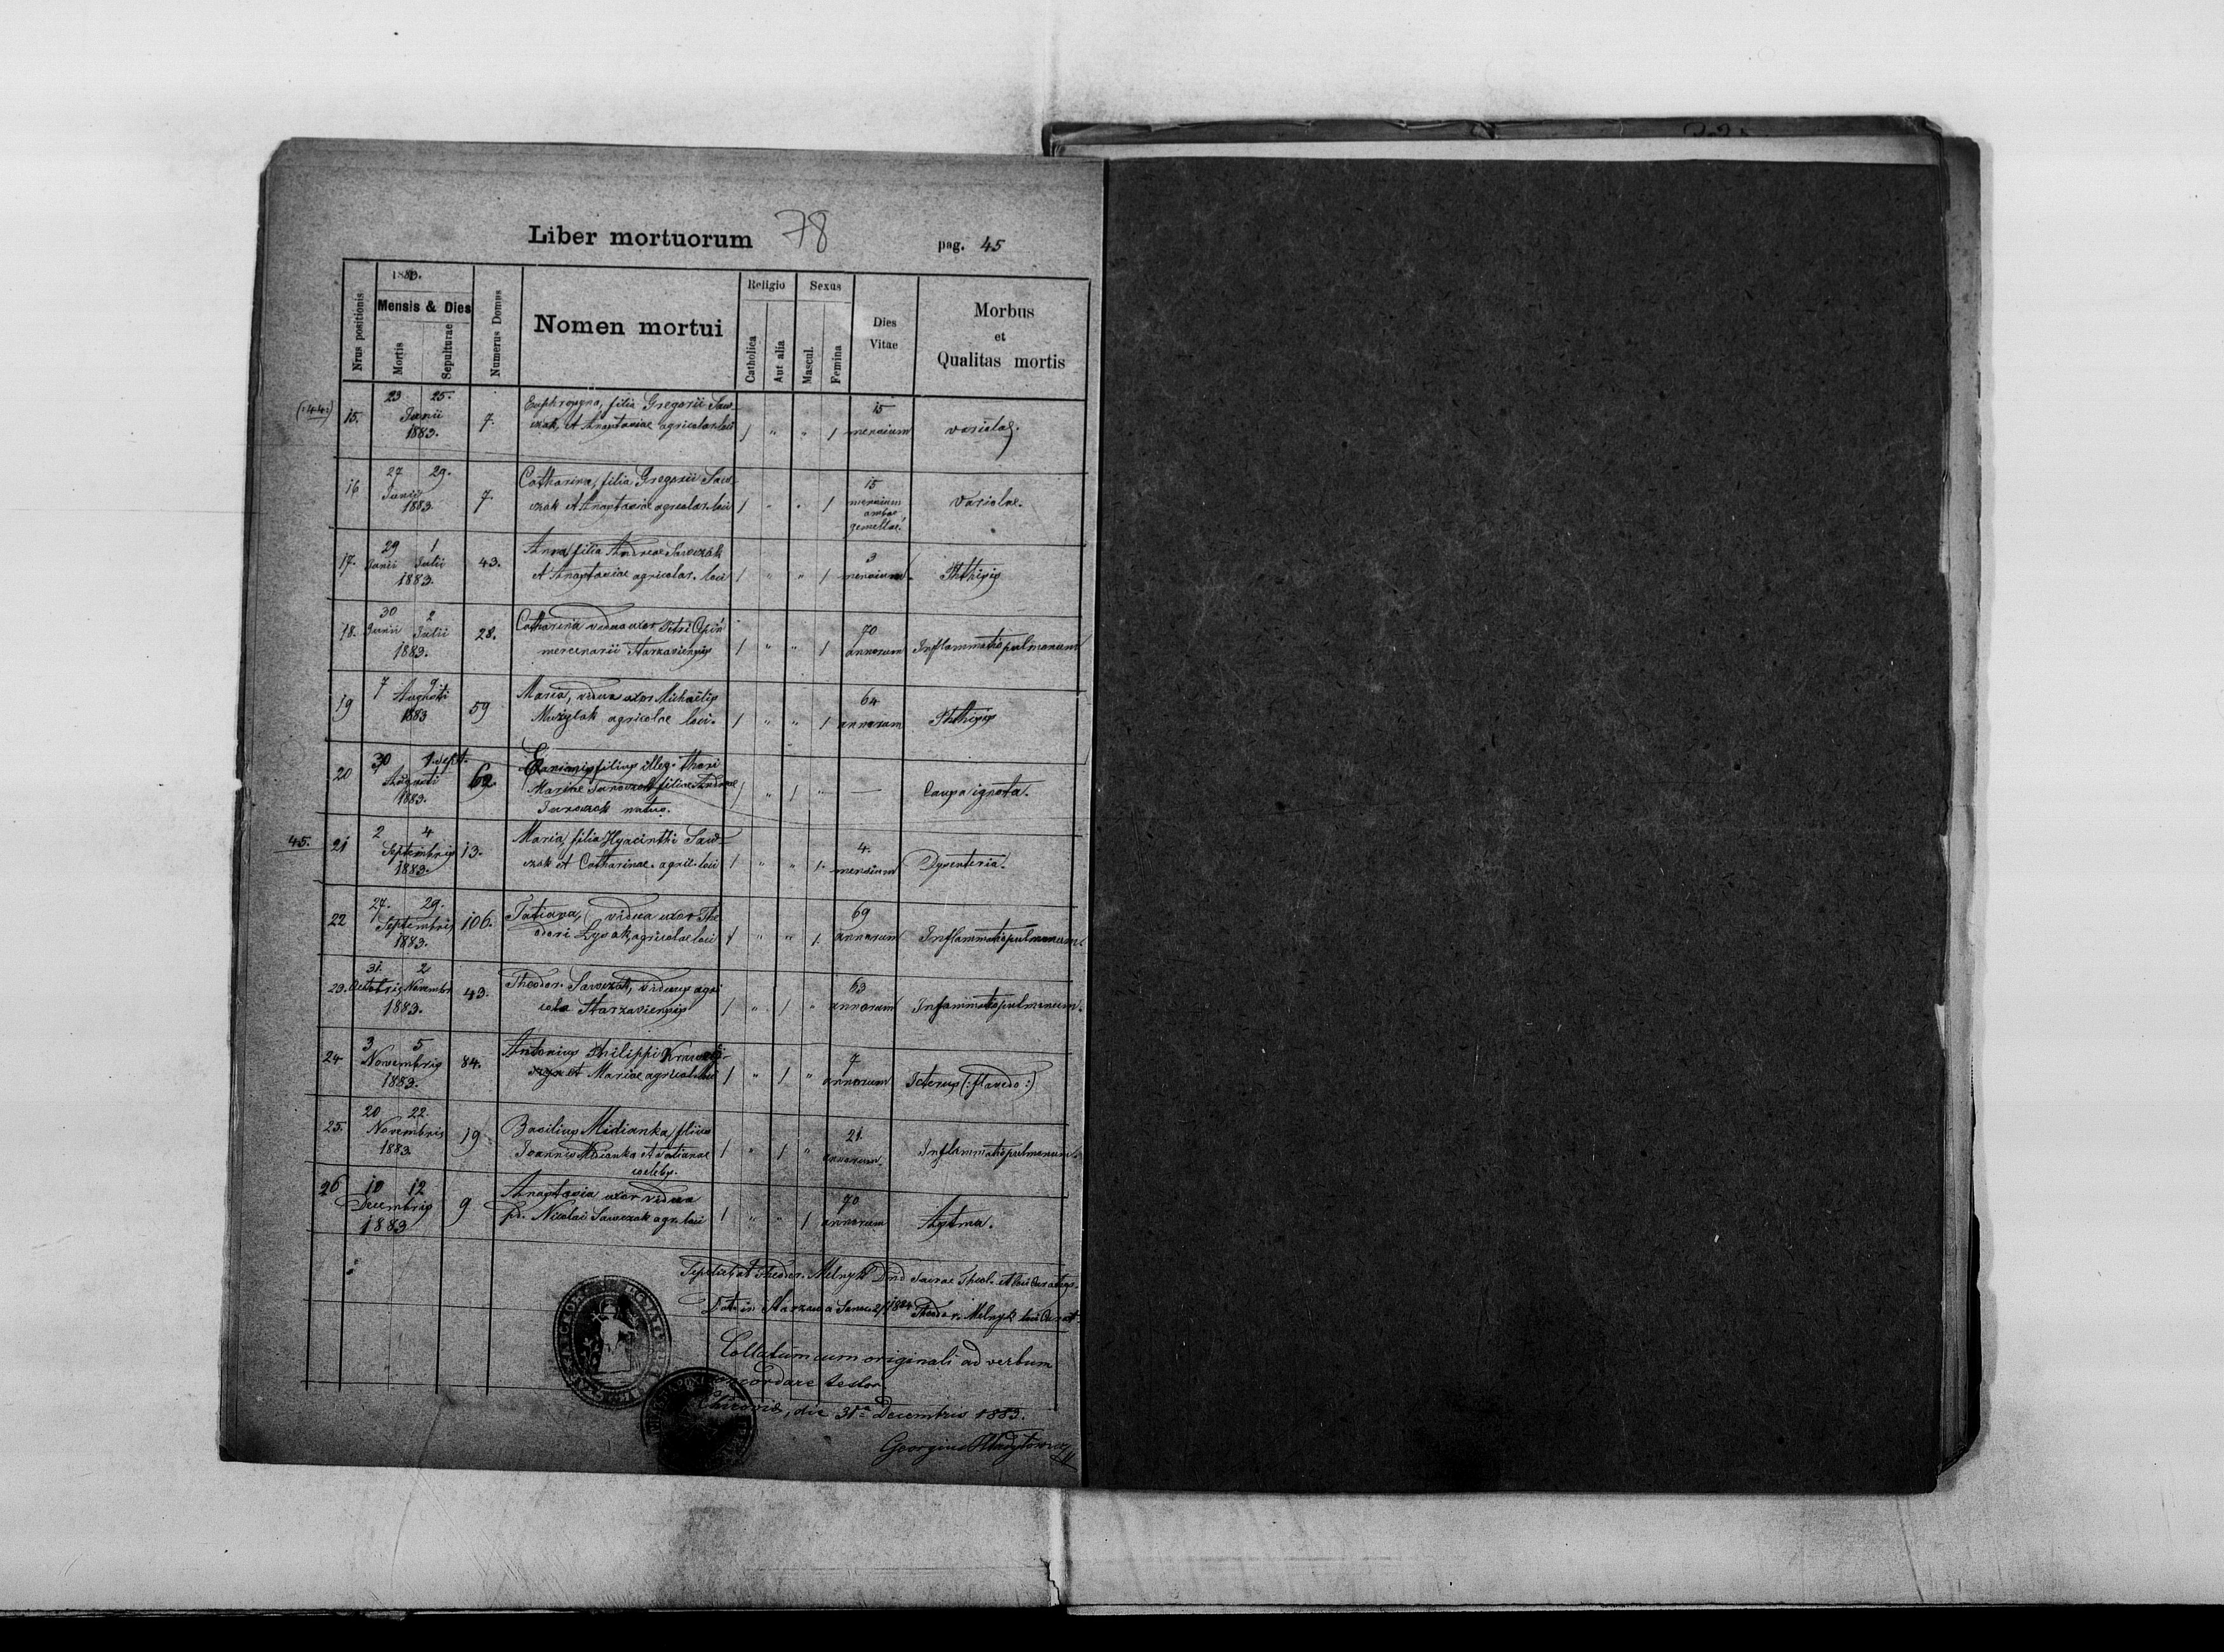 Liber mortuorum 78 pag. 45
1883.
Nrus positionis
Mensis & Dies
Mortis
Sepulturae
Numerus Domus
Nomen mortui
Religio
Catholica
Aut alia
Sexus
Mascul.
Femina
Dies Vitae
Morbus et Qualitas mortis
(44)
15. 23 25. Junii 1883. 7. Euphrosyna, filia Gregorii Saw-
czak et Anastasiae agricolar. loci 1 " " 1 15 mensium variolae.
16 27 29. Junii 1883 7. Catharina, filia Gregorii Saw-
czak et Anastasiae agricolar. loci 1 " " 1 15 mensium ambae gemellae. Variolae.
17. 29 Junii 1 Julii 1883. 43. Anna, filia Andreae Sawczak
et Anastasiae agricolar. loci 1 " " 1 3 mensium Phthisis
18. 30 Junii 2 Julii 1883. 28. Catharina vidua uxor Petri
mercenarii Starzaviensis 1 " " 1 70 annorum Inflammatio pulmonum
19 7 9 Augusti 1883 59 Maria, vidua uxor Michaelis
agricolae loci. 1 " " 1 64 annorum Phthisis
20 30 Augusti 1. Sept. 1883. 62. filius illeg. thori
Mariae Janoczak filiae Andreae
Janoczak natus. 1 " 1 " — Causa ignota.
45. 21 2 4 Septembris 1883. 13. Maria, filia Hyacinthi Saw-
czak et Catharinae agric. loci 1 " " 1. 4. mensium Dysenteria.
22 27. 29. Septembris 1883. 106. Tatiana, vidua uxor The
odori Lysak, agricolae loci 1 " " 1. 69 annorum Inflammatio pulmonum.
23. 31. Octobris 2 Novembr 1883. 43. Theodor. Sawczak, viduus agri
cola Starzaviensis 1 " 1 " 63 annorum Inflammatio pulmonum.
24 3 5 Novembris 1883. 84. Antonius Philippi
et Mariae agricol. loci 1 " 1 " 7 annorum Icterus (: flavedo :)
25. 20 22. Novembris 1883 19 Basilius Midianka, filius
Joannis Midianka et Tatianae
coelebs. 1 " 1 " 21. annorum. Inflammatio pulmonum.
26 10 12 Decembris 1883 9 Anastasia uxor vidua
pd. Nicolai Sawczak agr. loci 1 " " 1 70 annorum Astma.
Sepelivit Theodor. Melnyk Sacrae Theol. et loci Curatus.
Dat. in Starzawa 1884 Theodor. Melnyk loci Curat.
Collatum cum originali ad verbum
concordare testor
Chirovis, die 31a Decembris 1883.
Georgius